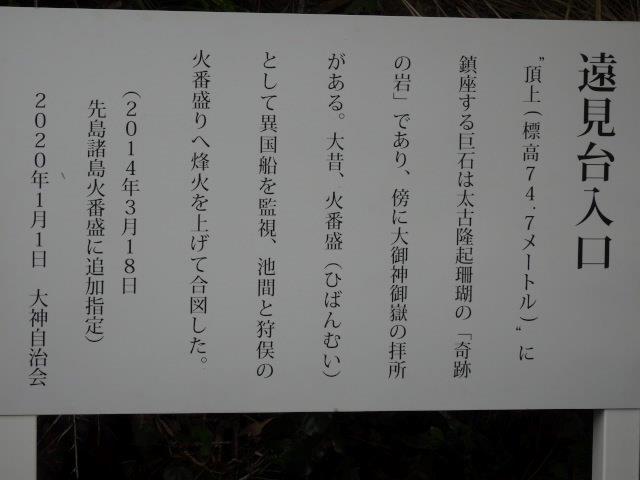 遠見台入口
“頂上(標高74.7メートル)“に
鎮座する巨石は太古隆起珊瑚の「奇跡
の岩」であり、傍に大御神御嶽の拝所
がある。大昔、火番盛(ひばんむい)
として異国船を監視、池間と狩俣の
火番盛りへ烽火を上げて合図した。
(2014年3月18日
先島諸島火番盛に追加指定)
2020年1月1日 大神自治会